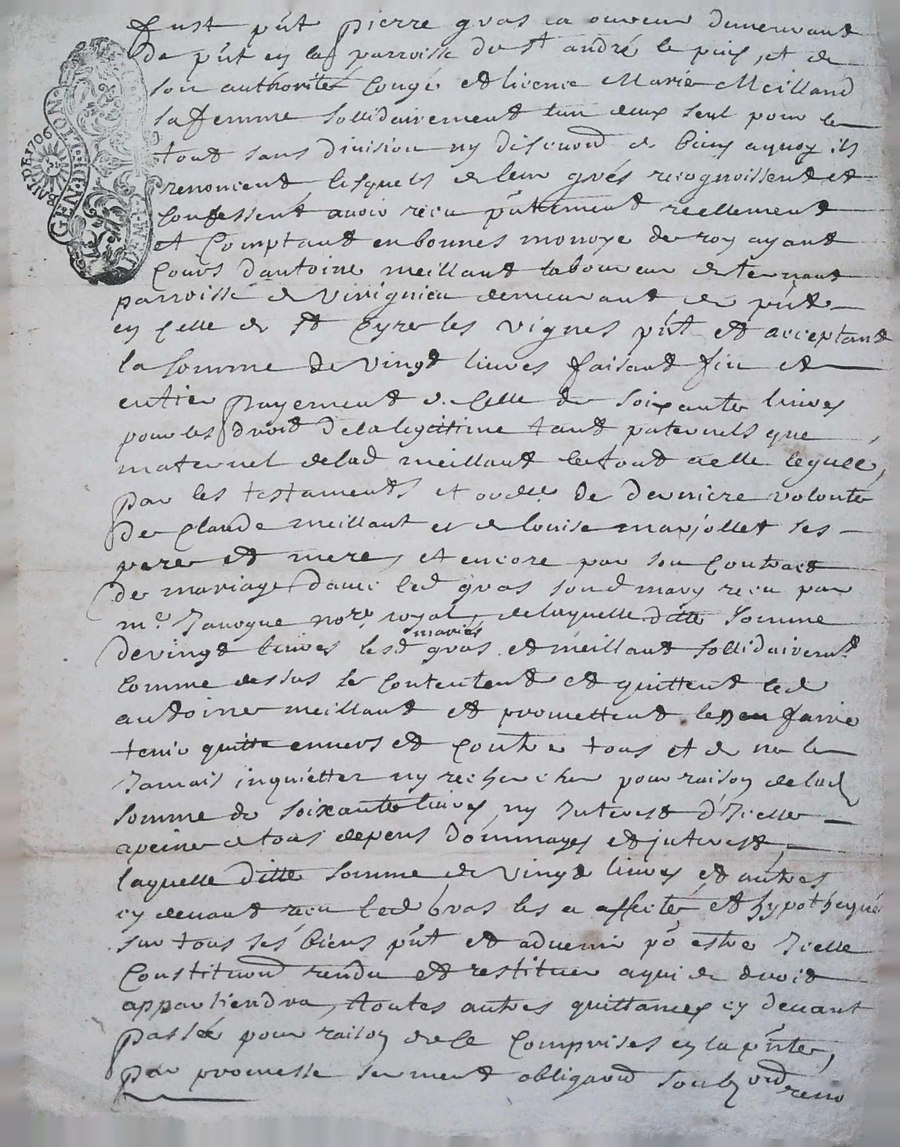 GEN. DE LION
Fust pñt pierre gras laboureur demeurant
de pñt en la parroisse de St andré le puy, et de
son authorité Congé et licence Marie Meilland
sa femme sollidairement l'un deux seul pour le
tout sans division ny discution de biens aquoy ils
renoncent lesquels de leur grés recognoissent et
Confessent avoir reçu pñtement reellement
et Comptant en bonnes monoye de roy ayant
Cours d'antoine meillant laboureur de
parroisse de demeurant de pñt
en Celle de St Cyre les vignes pñt et acceptant
la somme de vingt livres faisant fin et
entier payement de Celle de soixante livres
pour les droit de la legitime tant paternels que
maternel de lad meillant le tout a elle legué,
par les testaments et de derniere volonté
de Claude meillant et de louise marjollet ses
pere et mere, et encore par son Contract
de mariage d'avec led gras sond mary reçu par
me Janogue nore royal, de laquelle ditte somme
de vingt livres lesd mariés gras et meillant sollidairemt
Comme dessus se Contentent et quittent led
antoine meillant et promettent le faire
tenir quitte envers et Contre tous et de ne le
Jamais inquietter ny rechercher pour raison de lad
somme de soixante livres ny Interest d'Icelle
a peine de tous depens dommages et interest,
laquelle ditte somme de vingt livres et autres
cy devant reçu led gras les a affecté et hypothequé
sur tous ses biens pñt et advenir po estre Icelle
Constitution rendu et restituer a qui de droit
appartiendra, toutes autres quittances cy devant
passée pour raison de ce Comprises en la pñte,
par promesse serment obligaon